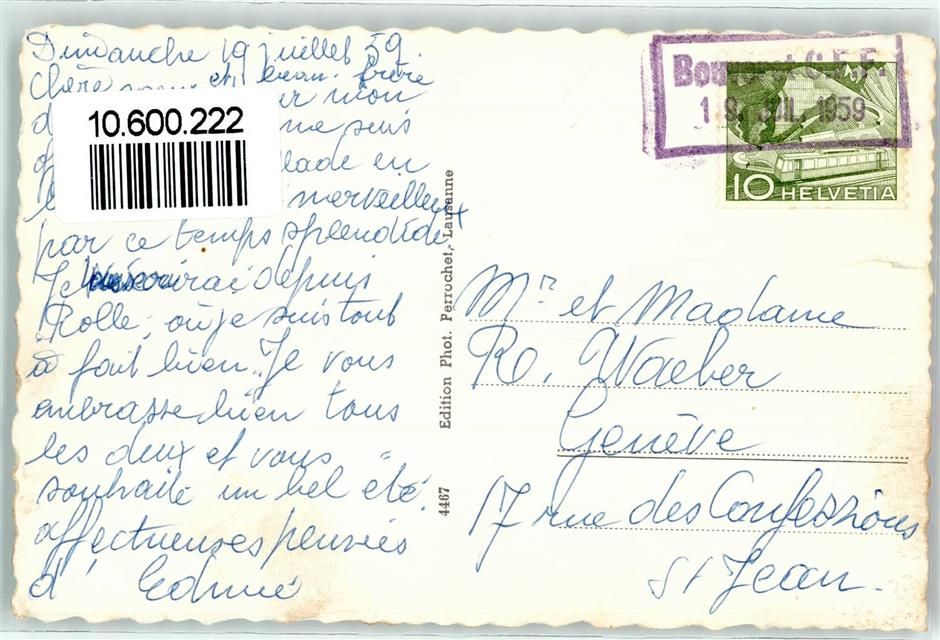 Dimanche 19 juillet 59.
Chère et beau-frère
mon
me suis
lade en
merveilleux
par ce temps splendide
Je écrirai depuis
Rolle, où je suis tout
à fait bien. Je vous
embrasse bien tous
les deux et vous
souhaite un bel été.
affectueuses pensées
d' Edmée
10.600.222
4467 Edition Phot. Perrochet, Lausanne
C.F.F.
19. JUL. 1959
10 HELVETIA
Mr et Madame
R. Waeber
Genève
17 rue des Confessions
St Jean.